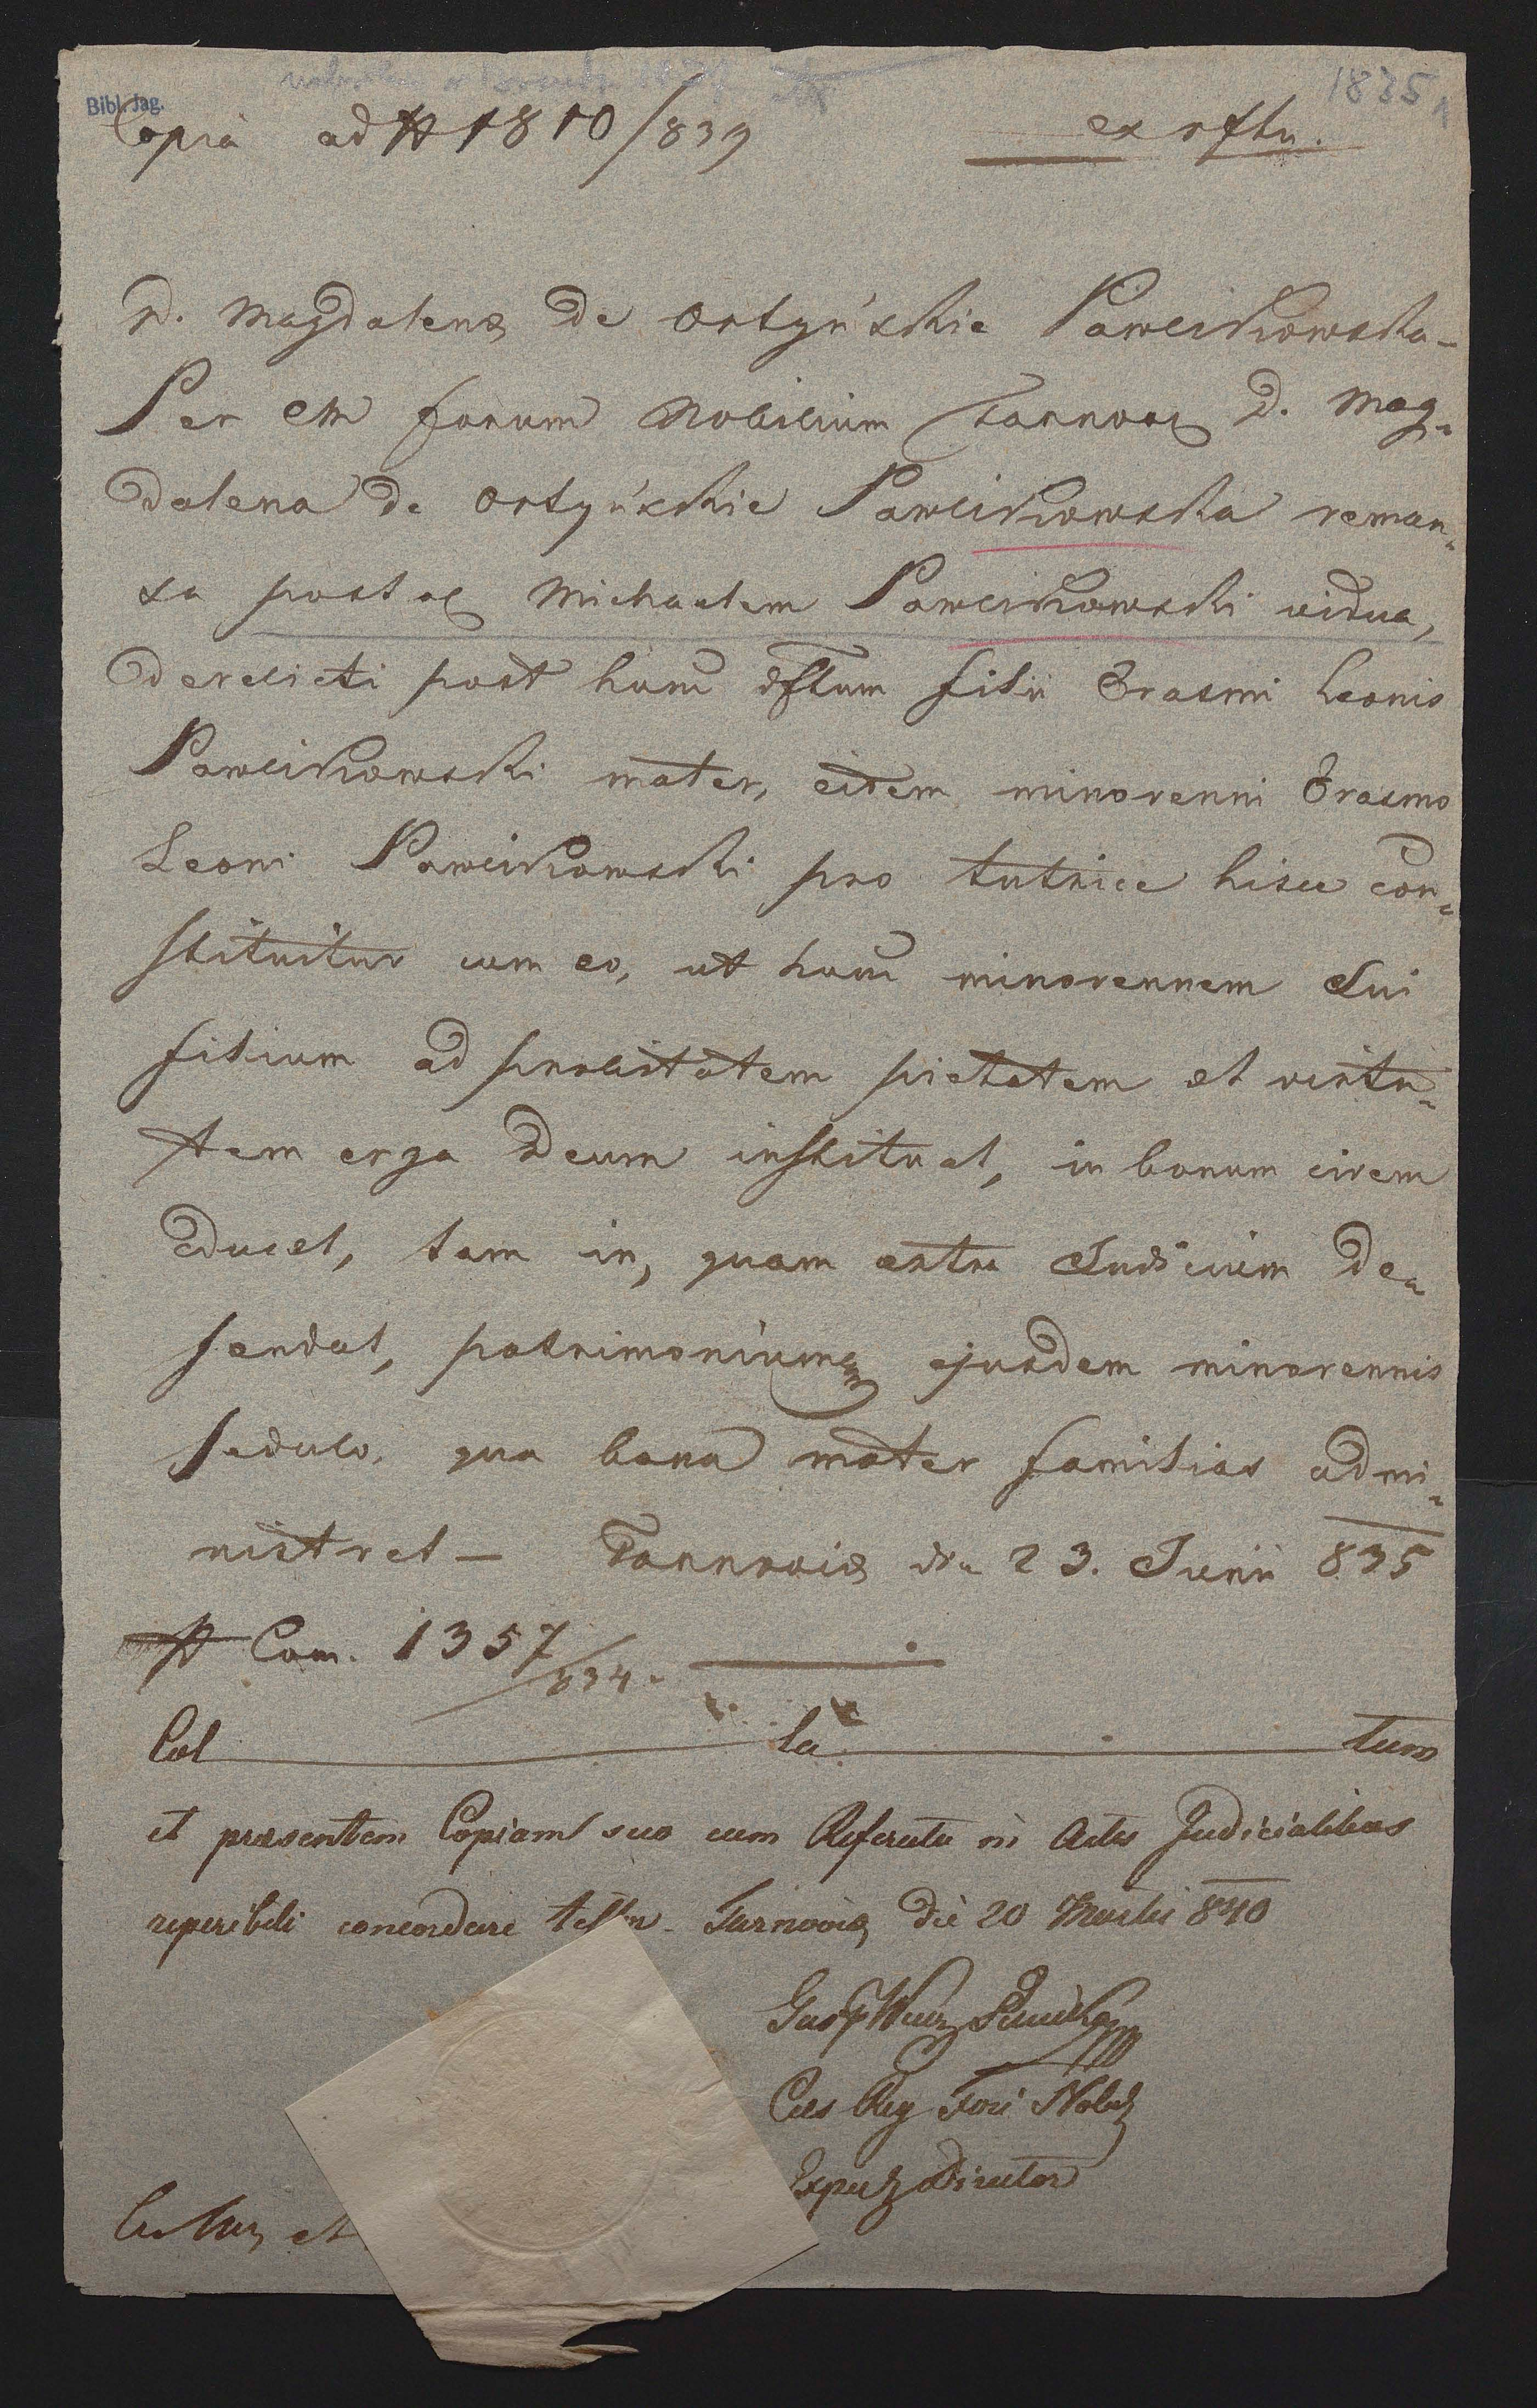 1835
Bibl. Jag.
Copia ad N 1810/839 ex rftu.
D. Magdalena de Ortyńskie Pawlikowska –
Per CR forum Nobilium Tarnov D. Mag=
dalena de Ortyńskie Pawlikowska reman=
sa post ol Michaelem Pawlikowski vidua,
derelicti post hunc dftum filii Erasmi Leonis
Pawlikowski mater, eidem minorenni Erasmo
Leoni Pawlikowski pro tutrice hisce con=
stituitur cum eo, ut hunc minorennem Sui
filium ad probitatem pietatem et virtu=
tem erga Deum instituat, in bonum civem
educet, tam in, quam extra Judicium de=
fendat, patrimoniumq ejusdem minorennis
sedulo, qua bona mater familias admi=
nistret – Tarnoviæ die 23. Junii 835
N Com. 1357/834.
Col la tum
et præsentem Copiam suo cum Referatu in Actis Judicialibus
reperibili concordare testor. Tarnoviæ die 20 Martii 840
Cæs Reg Fori Nobil
Exped Director
et